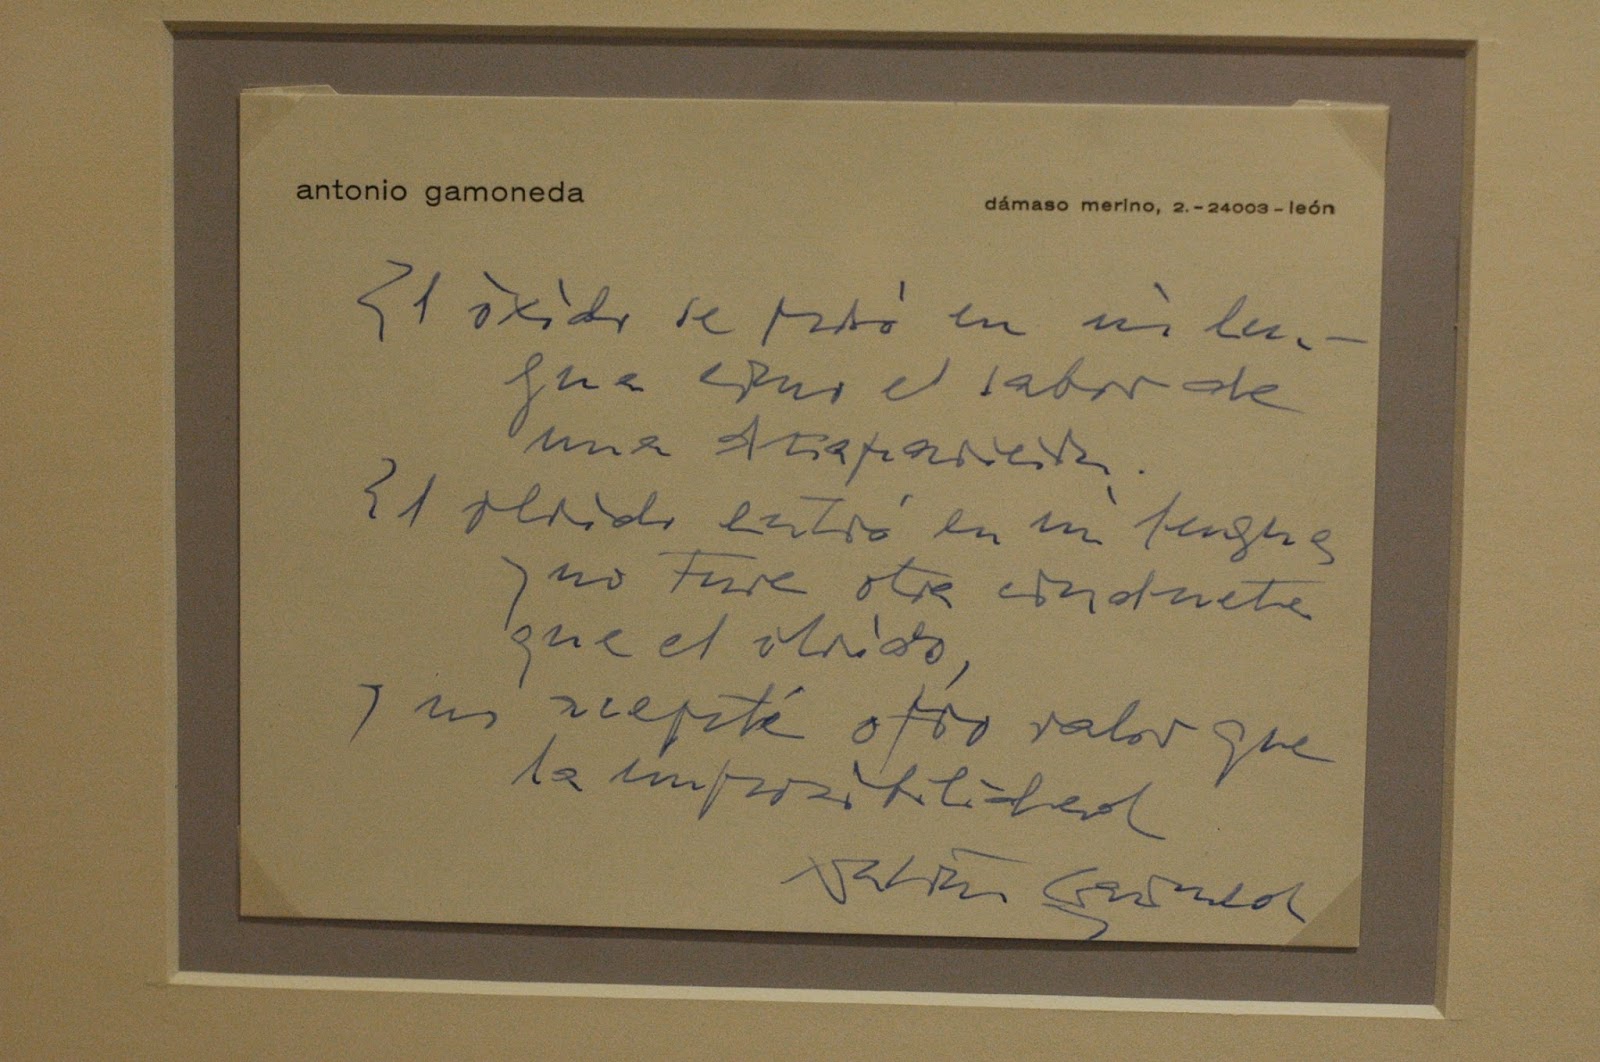 antonio gamoneda
dámaso merino, 2.-24003-león
El óxido se posó en mi len-
gua como el sabor de
una desaparición.
El olvido entró en mi lengua
y no tuve otra conducta
que el olvido,
y no acepté otro valor que
la imposibilidad
Antonio Gamoneda